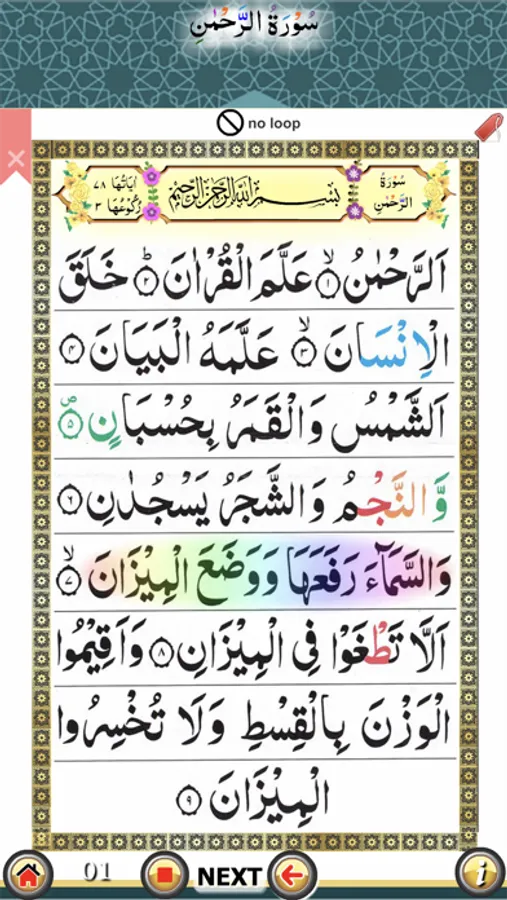 سُوْرَةُ الرَّحْمٰنِ
no loop
سُوْرَةُ الرَّحْمٰنِ
بِسْمِ اللّٰهِ الرَّحْمٰنِ الرَّحِيْمِ
اٰيَاتُهَا ٧٨
رُكُوْعُهَا ٣
اَلرَّحْمٰنُ ۙ﴿١﴾ عَلَّمَ الْقُرْاٰنَ ؕ﴿٢﴾ خَلَقَ
الْاِنْسَانَ ۙ﴿٣﴾ عَلَّمَهُ الْبَيَانَ ﴿٤﴾
اَلشَّمْسُ وَالْقَمَرُ بِحُسْبَانٍ ۪﴿٥﴾
وَّالنَّجْمُ وَالشَّجَرُ يَسْجُدٰنِ ﴿٦﴾
وَالسَّمَآءَ رَفَعَهَا وَوَضَعَ الْمِيْزَانَ ۙ﴿٧﴾
اَلَّا تَطْغَوْا فِى الْمِيْزَانِ ﴿٨﴾ وَاَقِيْمُوا
الْوَزْنَ بِالْقِسْطِ وَلَا تُخْسِرُوا
الْمِيْزَانَ ﴿٩﴾
01 NEXT i